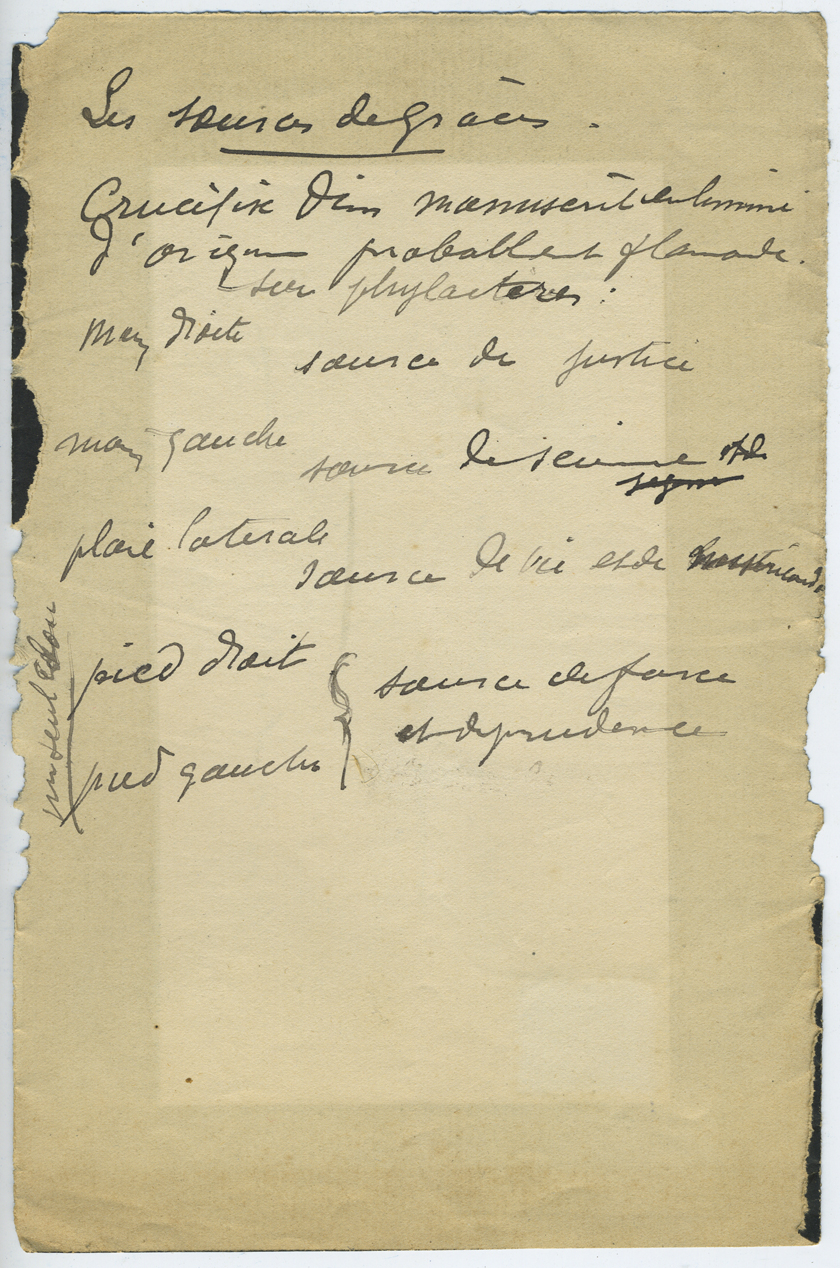 Les sources de grâces.
Crucifix d'un manuscrit enluminé
d'origine probablement flamande.
sur phylactères :
Main droite
source de justice
main gauche
source de science et de
sagesse
plaie laterale
source de vie et de
pied droit
source de force
et de prudence
pied gauche
un seul clou